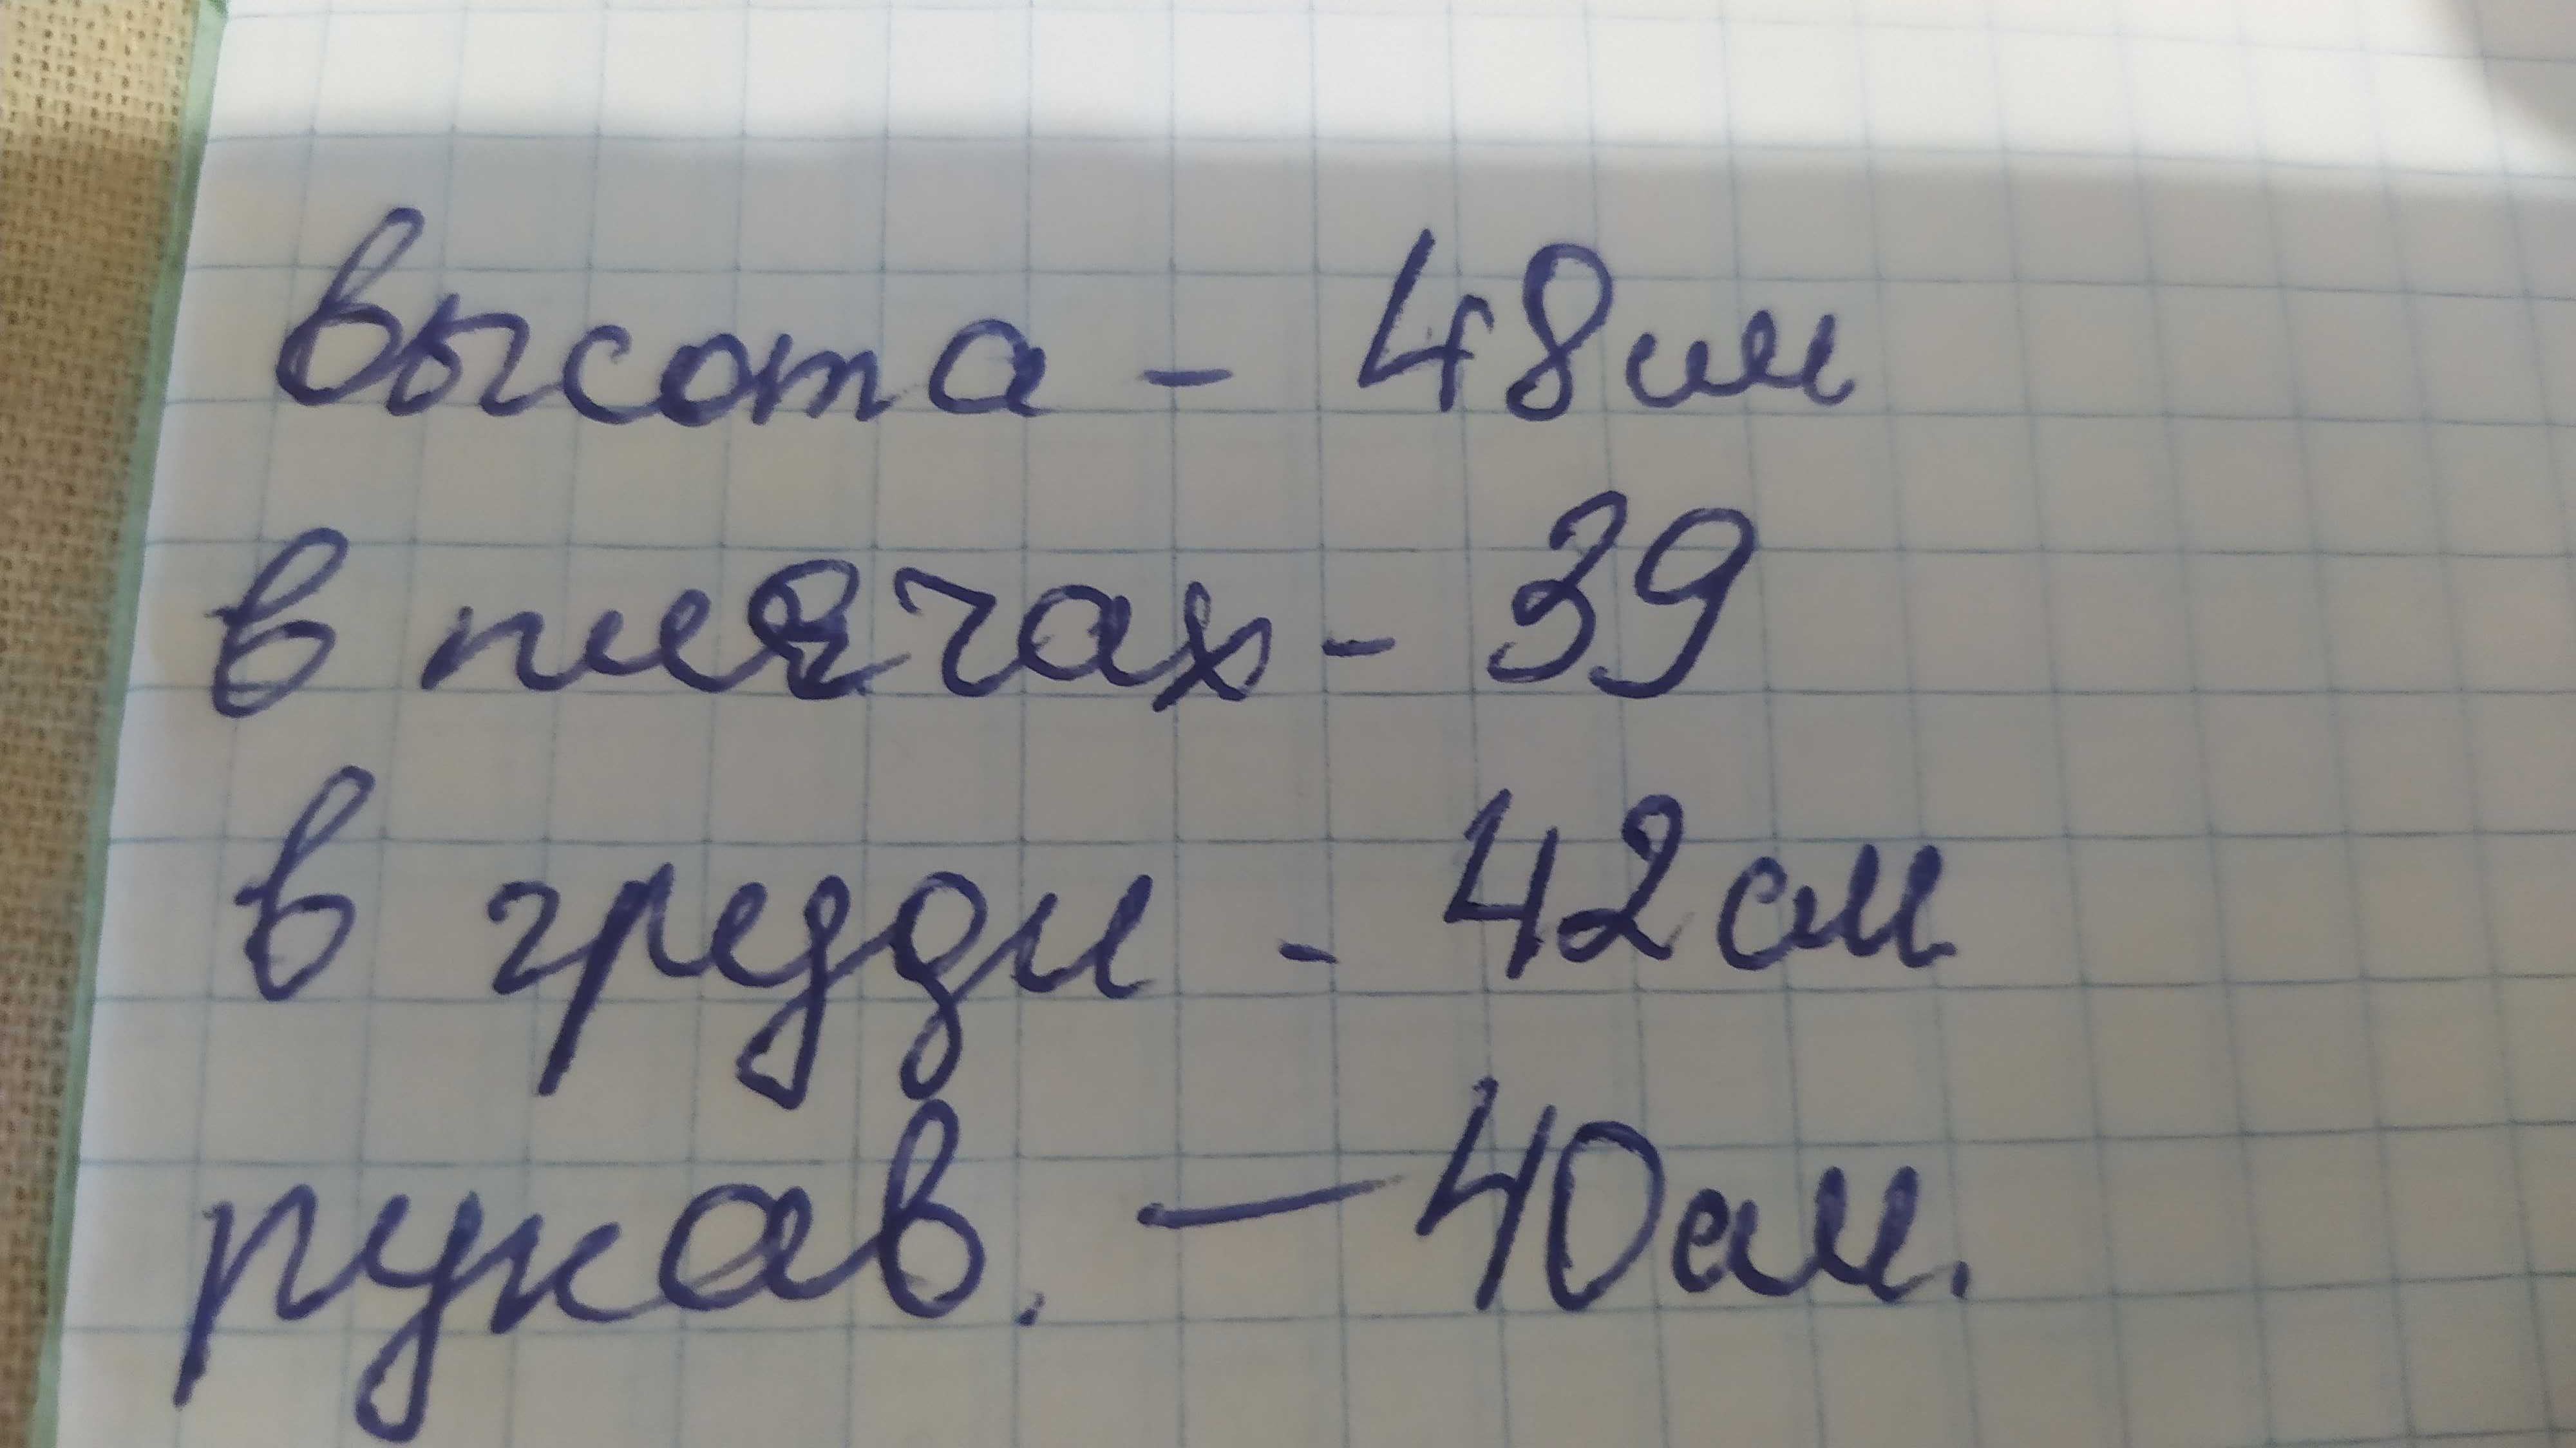 высота - 48см
в плечах - 39
в груди - 42см
рукав. - 40см.